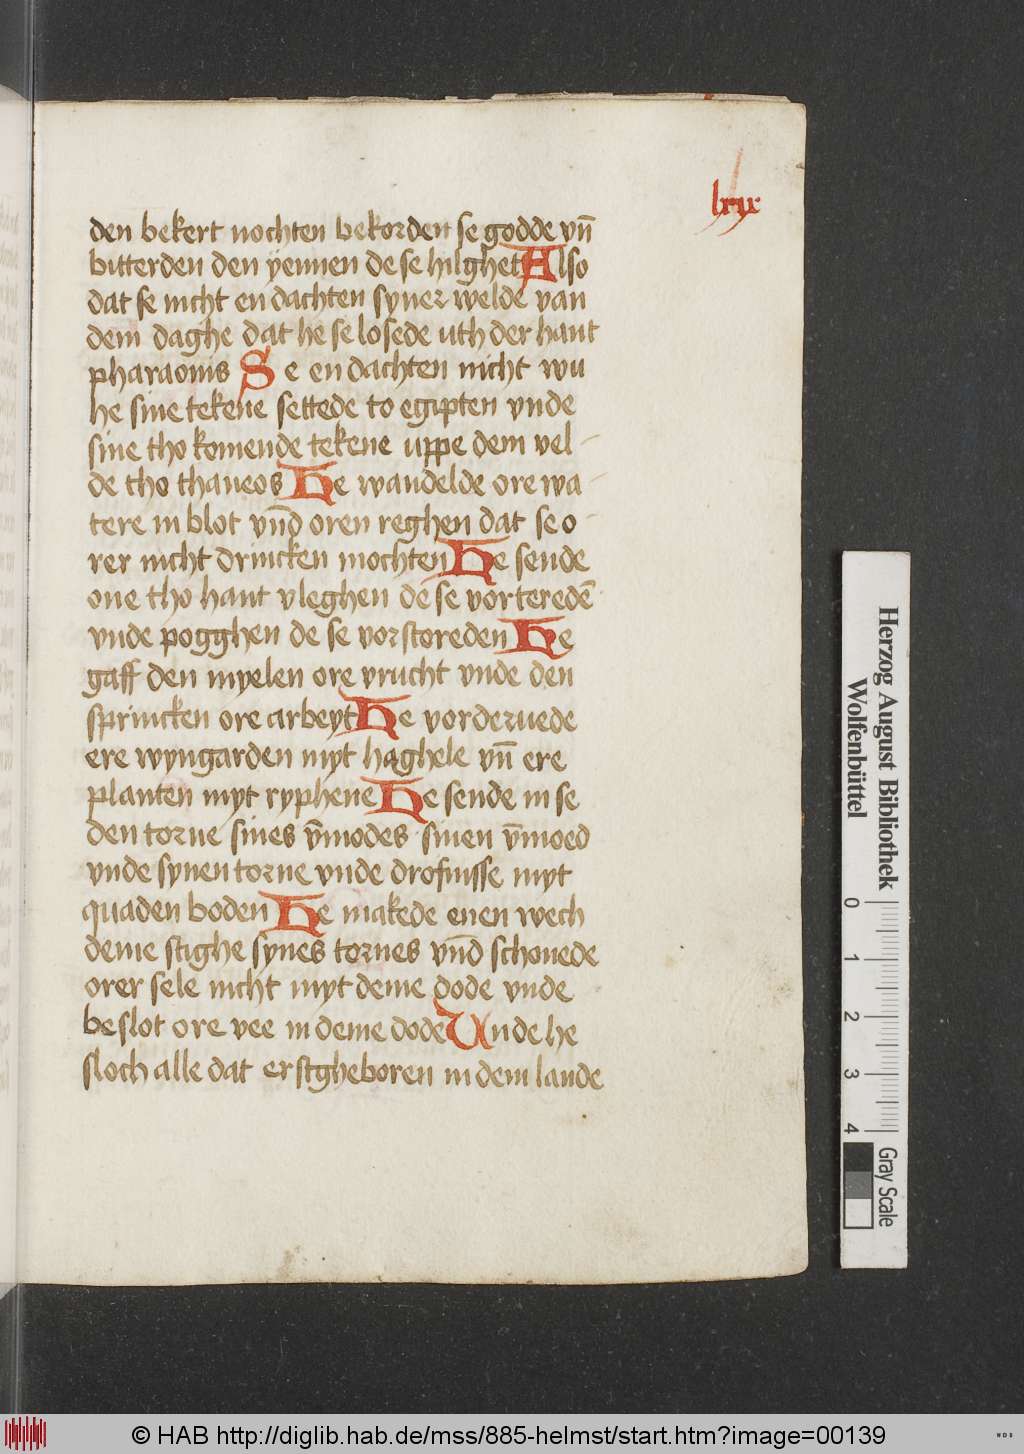 lxix
den bekert nochten bekorden se godde vn̄
bitterden den yennen de se hilghet Also
dat se nicht en dachten syner welde van
dem daghe dat he se losede uth der hant
pharaonis Se en dachten nicht wu
he sine tekene settede to egipten vnde
sine tho komende tekene uppe dem vel-
de tho thaneos He wandelde ore wa-
tere in blot vn̄d oren reghen dat se o-
rer nicht drincken mochten He sende
one tho hant vleghen de se vorteredē
vnde pogghen de se vorstoreden He
gaff den myelen ore vrucht vnde den
sprincken ore arbeyt He vorderuede
ere wyngarden myt haghele vn̄ ere
planten myt ryphene He sende in se
den torne sines v̄modes sinen v̄moed
vnde synen torne vnde drofnisse myt
quaden boden He makede enen wech
deme stighe synes tornes vn̄d schonede
orer sele nicht myt deme dode vnde
beslot ore vee in deme dode Unde he
sloch alle dat erstgheboren in dem lande
Herzog August Bibliothek
Wolfenbüttel
0 1 2 3 4
Gray Scale
© HAB http://diglib.hab.de/mss/885-helmst/start.htm?image=00139